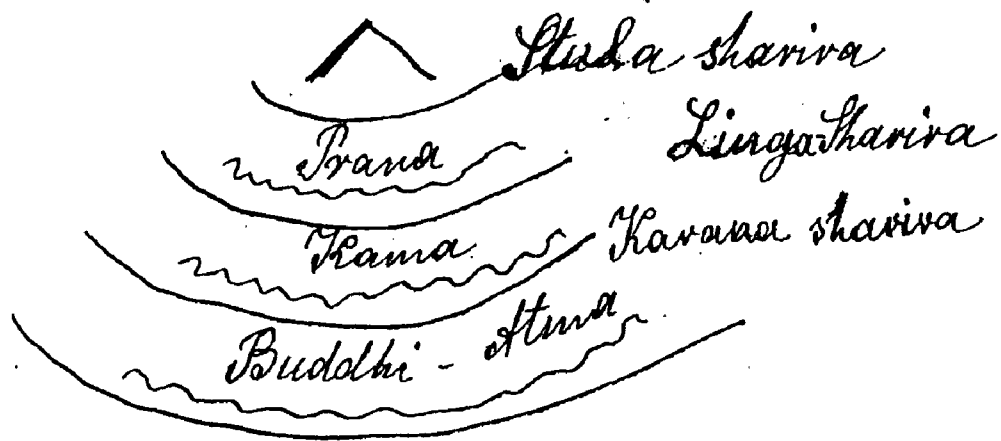 Stula sharira
Prana
Linga Sharira
Kama
Karana sharira
Buddhi - Atma